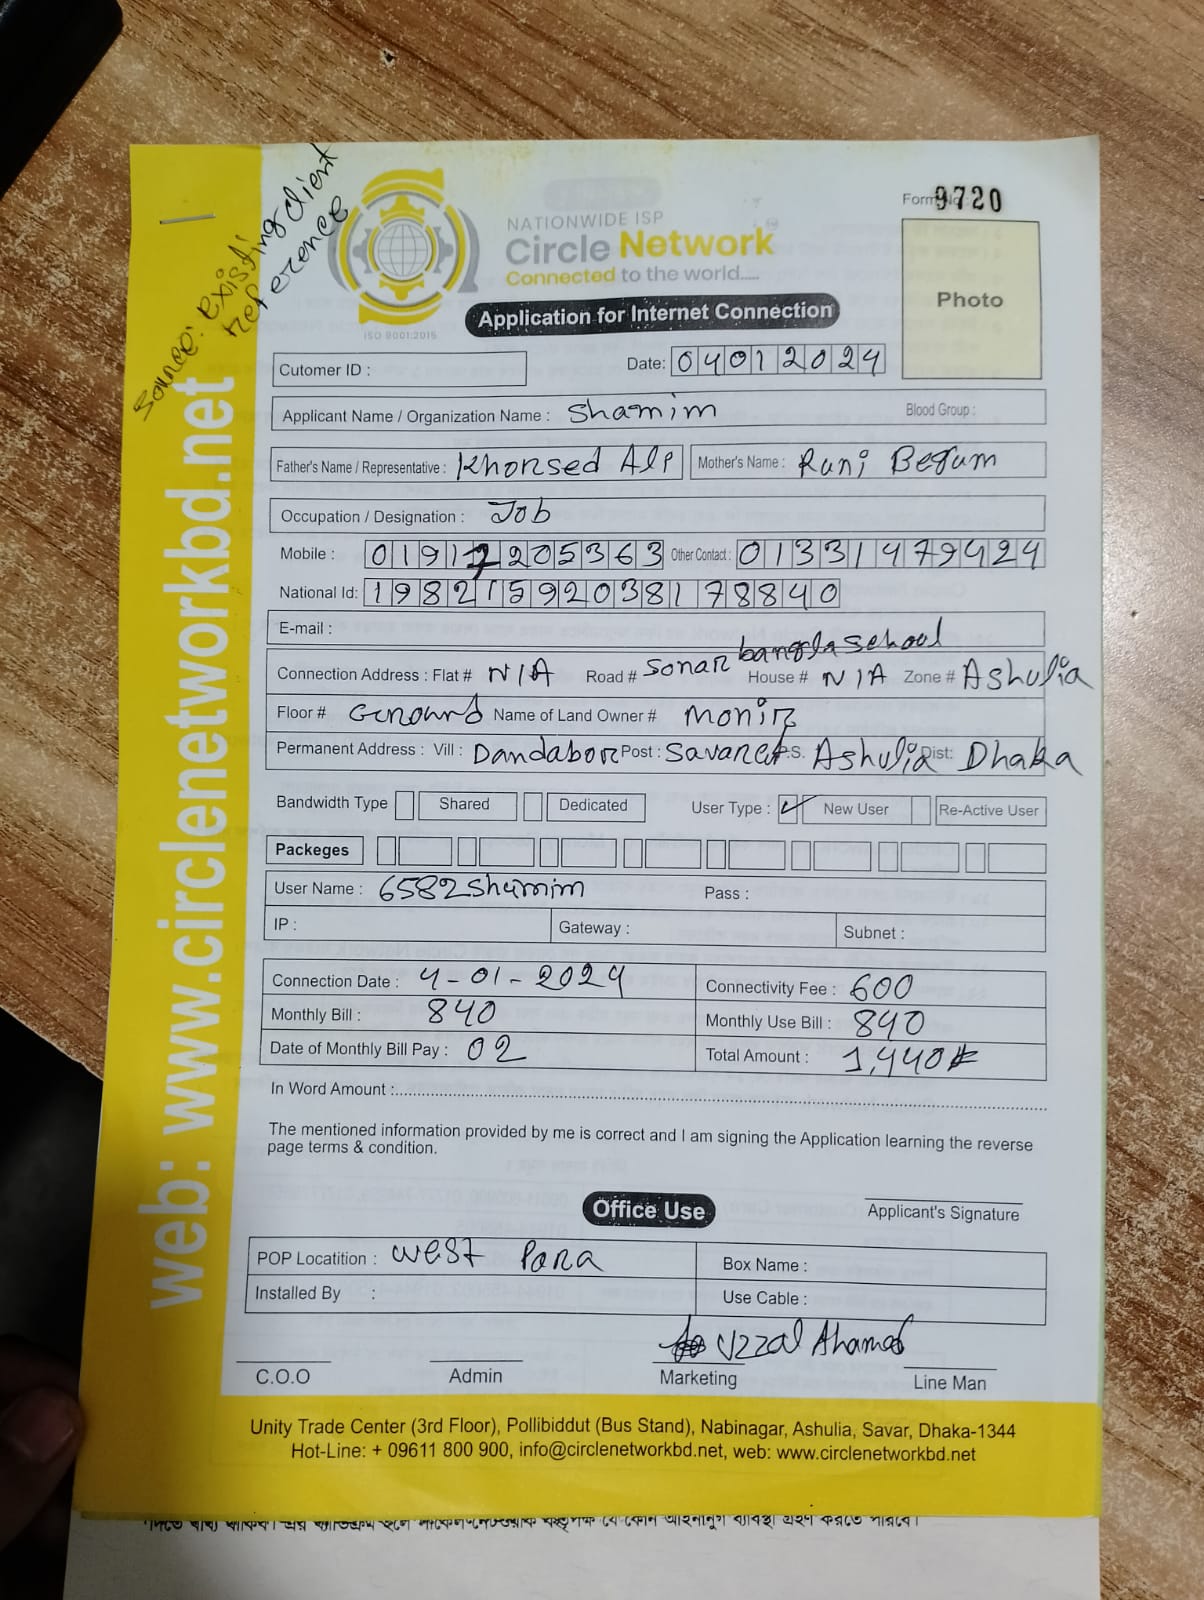 Source: existing client
reference
web: www.circlenetworkbd.net
Form No: 9720
NATIONWIDE ISP
Circle Network
Connected to the world.....
ISO 9001:2015
Application for Internet Connection
Photo
Cutomer ID :
Date: 04012024
Applicant Name / Organization Name : Shamim Blood Group :
Father's Name / Representative : Khorsed Ali Mother's Name : Runi Begum
Occupation / Designation : Job
Mobile : 01912205363 Other Contact : 01331479424
National Id: 19821592038178840
E-mail :
Connection Address : Flat # N/A Road # Sonar bangla School House # N/A Zone # Ashulia
Floor # Ground Name of Land Owner # Monir
Permanent Address : Vill : Dandabor Post : Savar P.S. Ashulia Dist: Dhaka
Bandwidth Type Shared Dedicated User Type : ✓ New User Re-Active User
Packeges
User Name : 6582shamim Pass :
IP : Gateway : Subnet :
Connection Date : 4-01-2024 Connectivity Fee : 600
Monthly Bill : 840 Monthly Use Bill : 840
Date of Monthly Bill Pay : 02 Total Amount : 1,440
In Word Amount :
The mentioned information provided by me is correct and I am signing the Application learning the reverse
page terms & condition.
Applicant's Signature
Office Use
POP Locatition : West Para Box Name :
Installed By : Use Cable :
Uzzal Ahamed
C.O.O Admin Marketing Line Man
Unity Trade Center (3rd Floor), Pollibiddut (Bus Stand), Nabinagar, Ashulia, Savar, Dhaka-1344
Hot-Line: + 09611 800 900, info@circlenetworkbd.net, web: www.circlenetworkbd.net